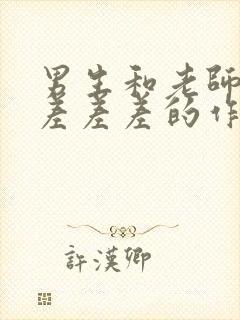 男生和老師
差差差的作
許漢卿